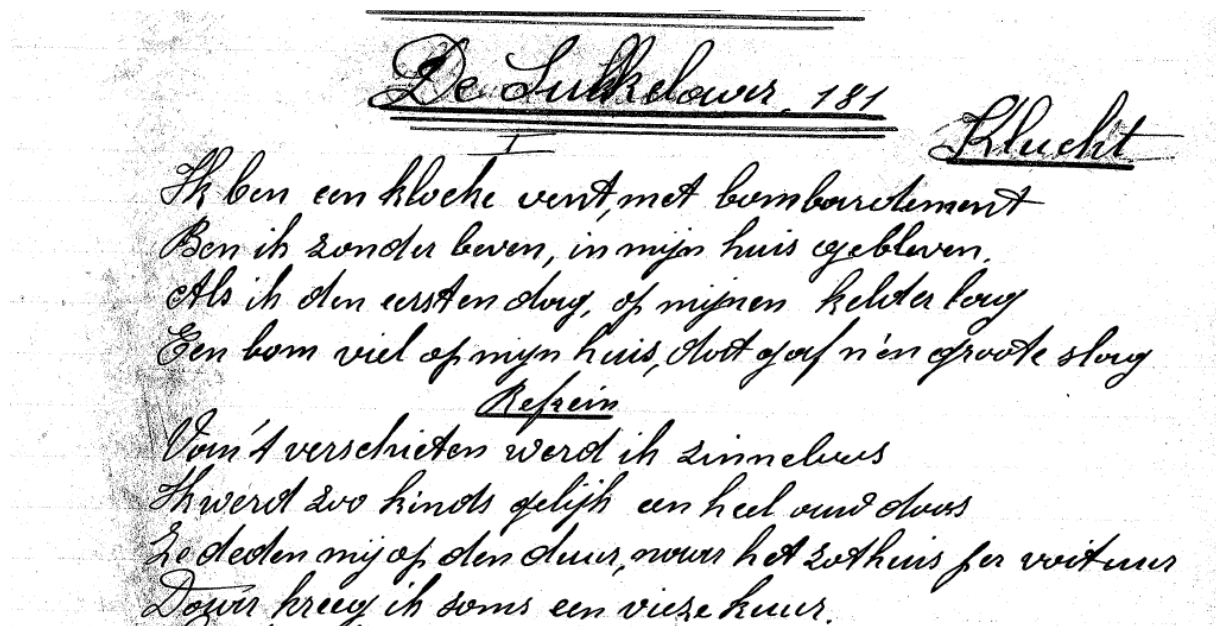 De Sukkelaar. 181
Klucht
I
Ik ben een kloeke vent, met bombardement
Ben ik zonder beven, in mijn huis gebleven.
Als ik den eersten dag, op mijnen kelder lag
Een bom viel op mijn huis, dat gaf n'en groote slag
Refrein
Van 't verschieten werd ik zinneloos
Ik werd zoo kinds gelijk een heel oud doos
Ze deden mij op den duur, naar het zothuis per voituur
Daar kreeg ik soms een vieze kuur.